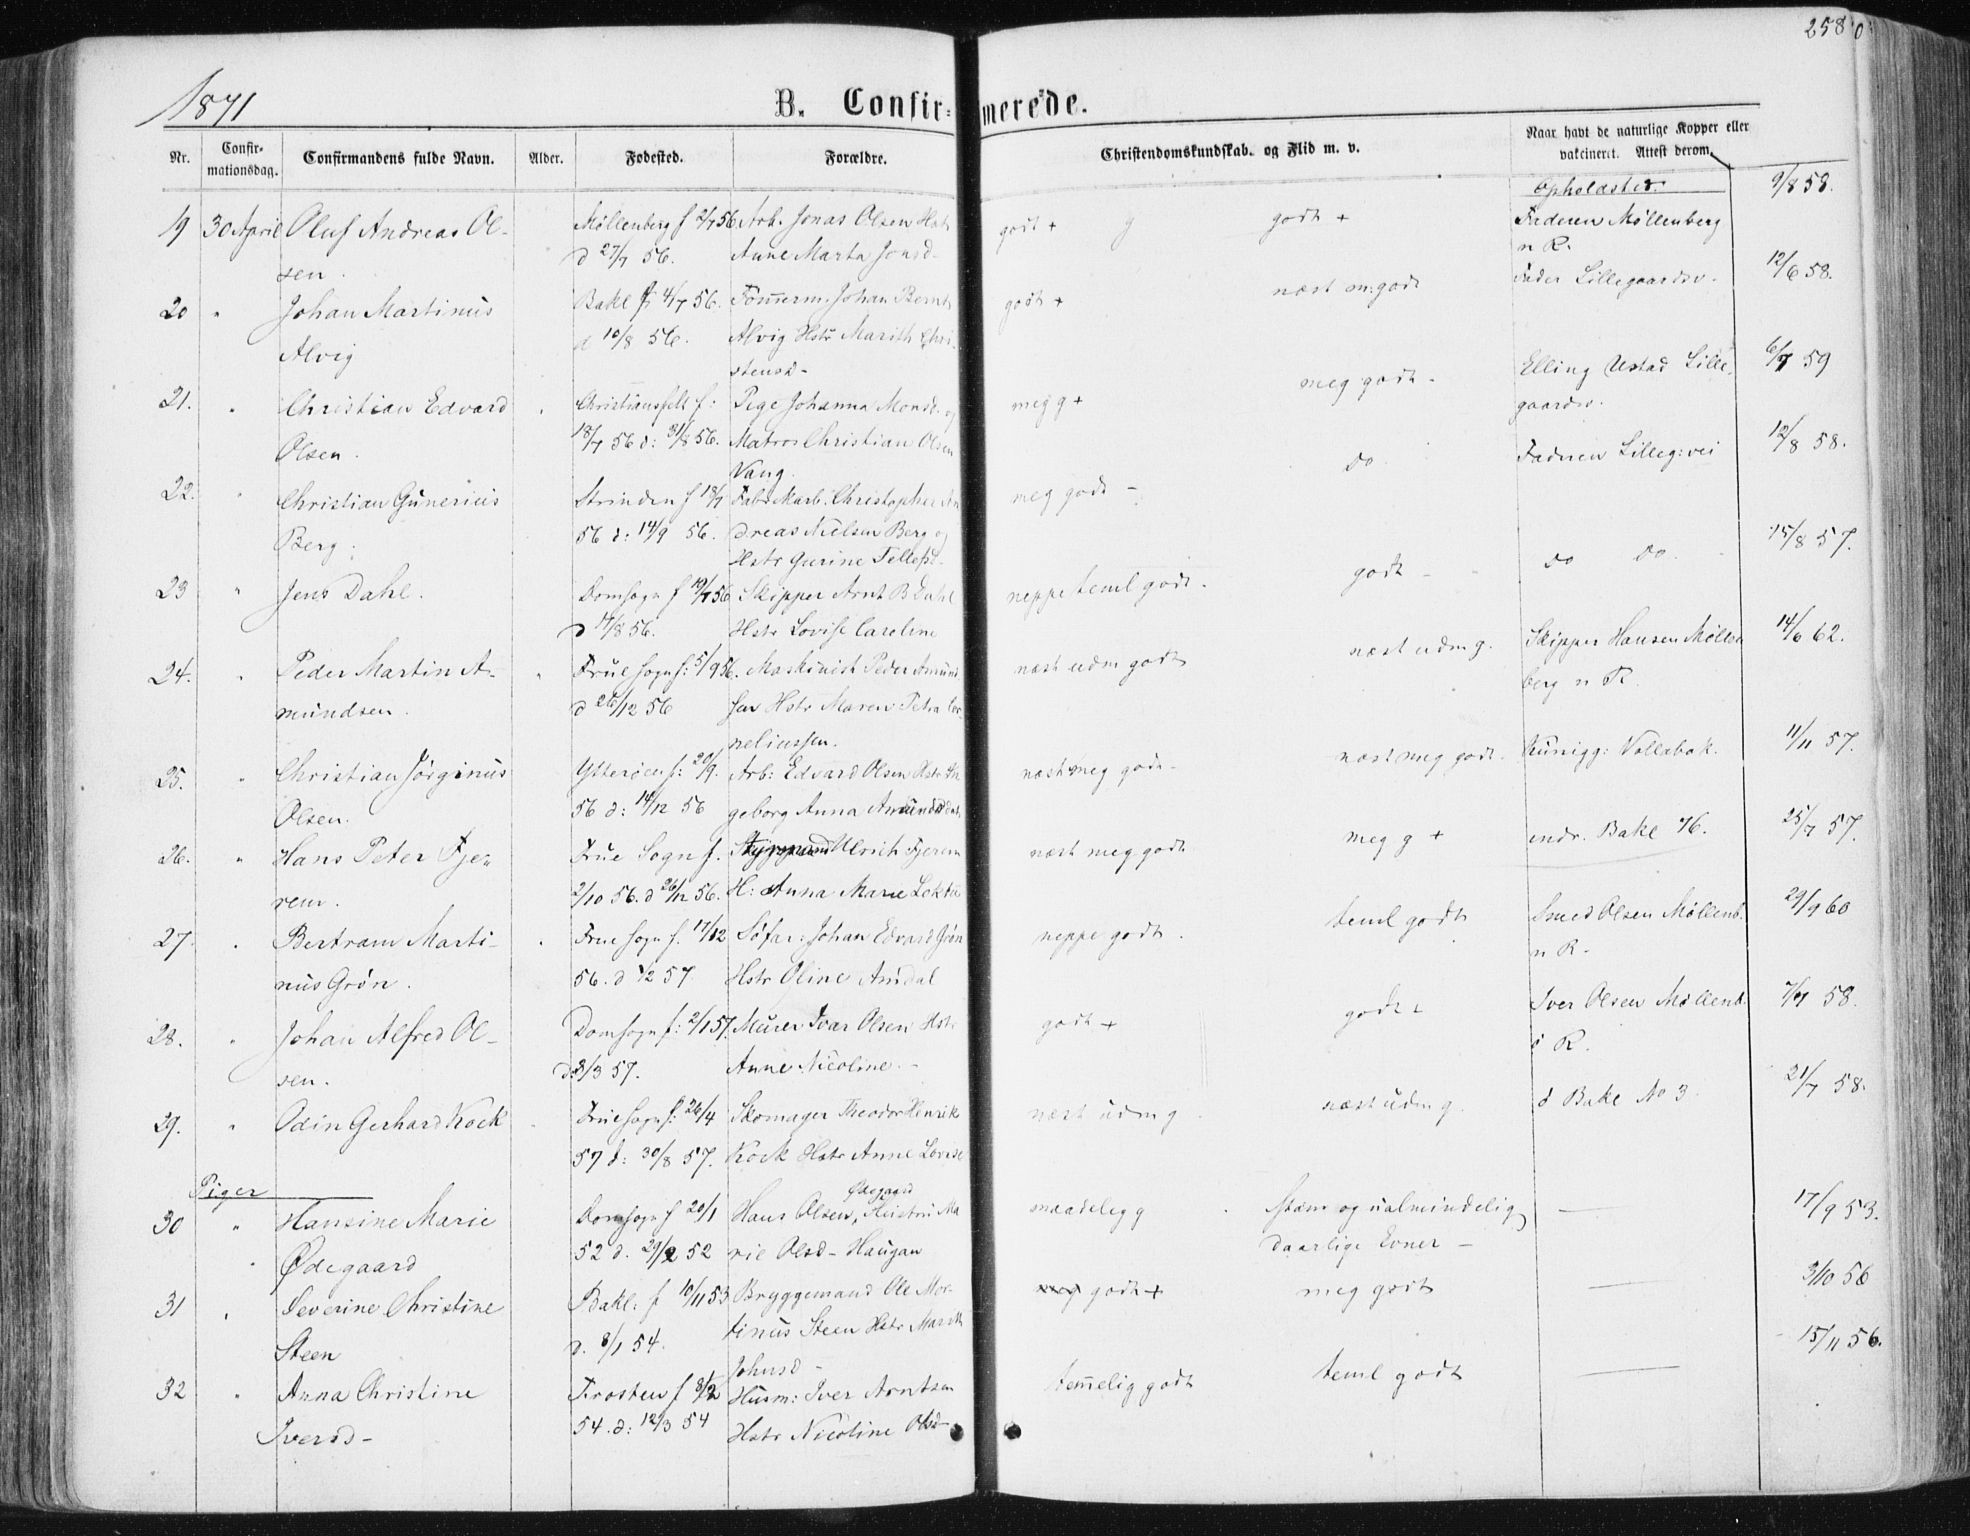 258
1871
B. Confirmerede.
Nr. Confirmationsdag. Confirmandens fulde Navn. Alder. Fødested. Forældre. Christendomskundskab. og Flid m. v. Naar havt de naturlige Kopper eller vakcineret. Attest derom.
Opholdsted.
19 30 April Oluf Andreas Ol- Møllenberg f 2/7 56 Arb. Jonas Olsen Hstr godt + godt + Faderen Møllenberg 9/8 58.
sen. d 27/7 56. Anne Marta Jonsd- n R.
20 " Johan Martinus Bakl f 4/7 56. Tømmerm. Johan Bernt godt + næst m: godt Fader Lillegaardsv. 12/6 58.
Alvig d 10/8 56. Alvig Hstr Marith Chri-
stensd-
21. " Christian Edvard Christiansfelt f: Pige Johanna Monsd. og meg g + meg godt - Elling Ustad Lille- 6/7 59
Olsen. 18/7 56 d: 31/8 56. Matros Christian Olsen gaardsv.
Vang.
22. " Christian Gunerius Strinden f 18/7 Christopher An meg godt - do Faderen Lilleg: vei 12/8 58.
Berg. 56 d: 14/9 56. dreas Nielsen Berg og
Hstr Gurine Tellefsd.
23 " Jens Dahl. Domsogn f 19/7 56 Skipper Arnt B Dahl neppe teml godt. godt - do do 15/8 57.
d 17/8 56. Hstr Lovise Caroline
24. " Peder Martin A- Frue sogn f: 5/9 56. Maskinist Peder Amund næst udm godt næst udm g. Skipper Hansen Møllen 14/6 62.
mundsen. d 26/12 56 sen Hstr Maren Petra Cor- berg n R.
neliussen.
25. " Christian Jørginus Ytterøen f: 20/9. Arb: Edvard Olsen Hstr In næst meg godt - næst meg godt. Kunigg: Vollabak. 11/11 57.
Olsen. 56 d: 14/12 56 geborg Anna
26. " Hans Peter Fje- Frue Sogn f. Ulrich Fjerem næst meg godt meg g + indr. Bakl 76. 25/7 57.
rem. 2/10 56. d 26/12 56. H: Anna Marie
27. " Bertram Marti- Frue sogn f. 17/12 Søfar: Johan Edvard Grøn neppe godt. teml godt Smed Olsen Møllenb. 29/9 60
nus Grøn. 56. d 1/2 57 Hstr Oline Amdal n R.
28. " Johan Alfred Ol- Domsogn f: 2/1 57. Murer Ivar Olsen Hstr godt + godt + Iver Olsen Møllenb. 7/7 58.
sen. d: 8/3 57. Anne Nicoline. - s R.
29. " Odin Gerhard Kock Frue sogn f: 26/4 Skomager Theodor Henrik næst udm g næst udm g. s Bakl No 3. 21/7 58.
57 d: 30/8 57. Kock Hstr Anne Lovise
Piger
Ødegaard
30 " Hansine Marie Domsogn f 20/1 Hans Olsen, Hustru Ma maadelig g stam og ualmindelig — 17/9 53.
Ødegaard 52 d. 29/2 52 rie Olsd - Haugan daarlige Evner -
31 " Severine Christine Bakl: f 10/11 53 Bryggemand Ole Mor- godt + meg godt — 3/10 56
Steen d. 8/1 54. tinus Steen Hstr Marith
Johnsd-
32 " Anna Christine Frosten f 8/2 Husm: Iver Arntsen temelig godt teml godt — 15/11 56.
Iversd- 54. d: 12/3 54 Hstr Nicoline Olsd-